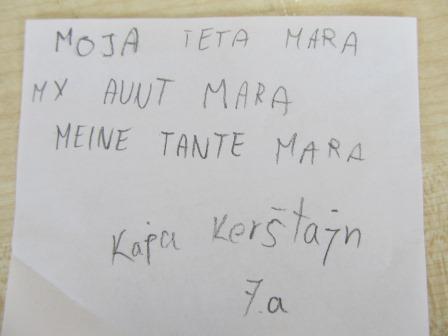 MOJA TETA MARA
MY AUNT MARA
MEINE TANTE MARA
Kaja Kerštajn
7.a